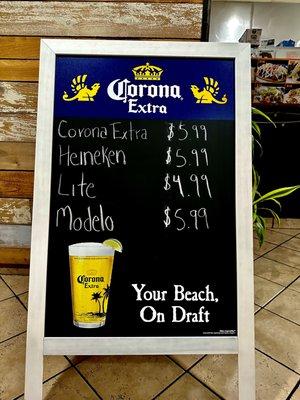 Corona
Extra
Corona Extra $5.99
Heineken $5.99
Lite $4.99
Modelo $5.99
Corona
Extra
Your Beach,
On Draft